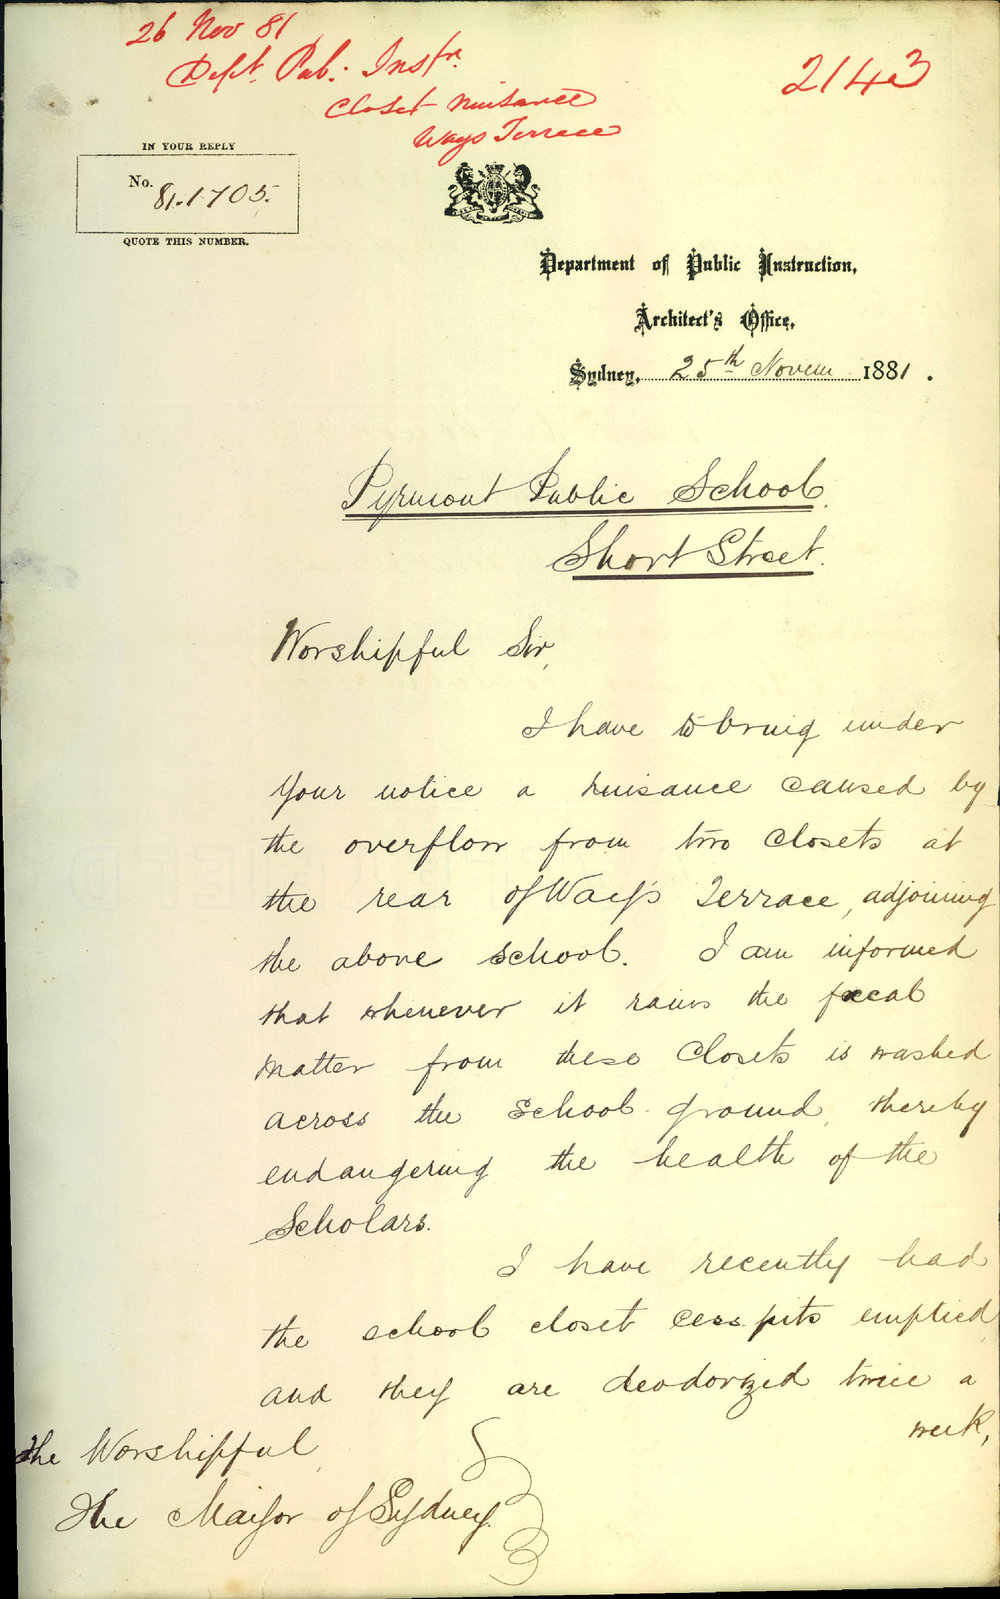 26 Nov 81
Dept. Pub. Instn.
Closet Nuisance
Ways Terrace
2143
IN YOUR REPLY
No. 81.1705.
QUOTE THIS NUMBER.
Department of Public Instruction,
Architect's Office,
Sydney, 25th Novem 1881.
Pyrmont Public School.
Short Street.
Worshipful Sir,
I have to bring under
Your notice a nuisance caused by
the overflow from two Closets at
the rear of Way's Terrace, adjoining
the above School. I am informed
that whenever it rains the fœcal
matter from these Closets is washed
across the School ground, thereby
endangering the health of the
Scholars.
I have recently had
the school closet cess pits emptied
and they are deodorized twice a
week,
The Worshipful,
The Mayor of Sydney.